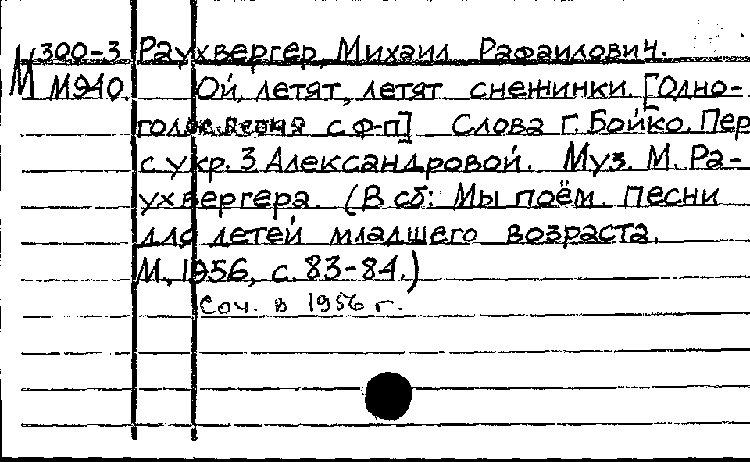 М 300-3 Раухвергер, Михаил Рафаилович.
М 940. Ой, летят, летят снежинки. [Одно-
голос. песня с ф-п] Слова Г. Бойко. Пер
с укр. З Александровой. Муз. М. Ра-
ухвергера. (В сб: Мы поём. Песни
для детей младшего возраста.
М., 1956, с. 83-84.)
Соч. в 1956 г.